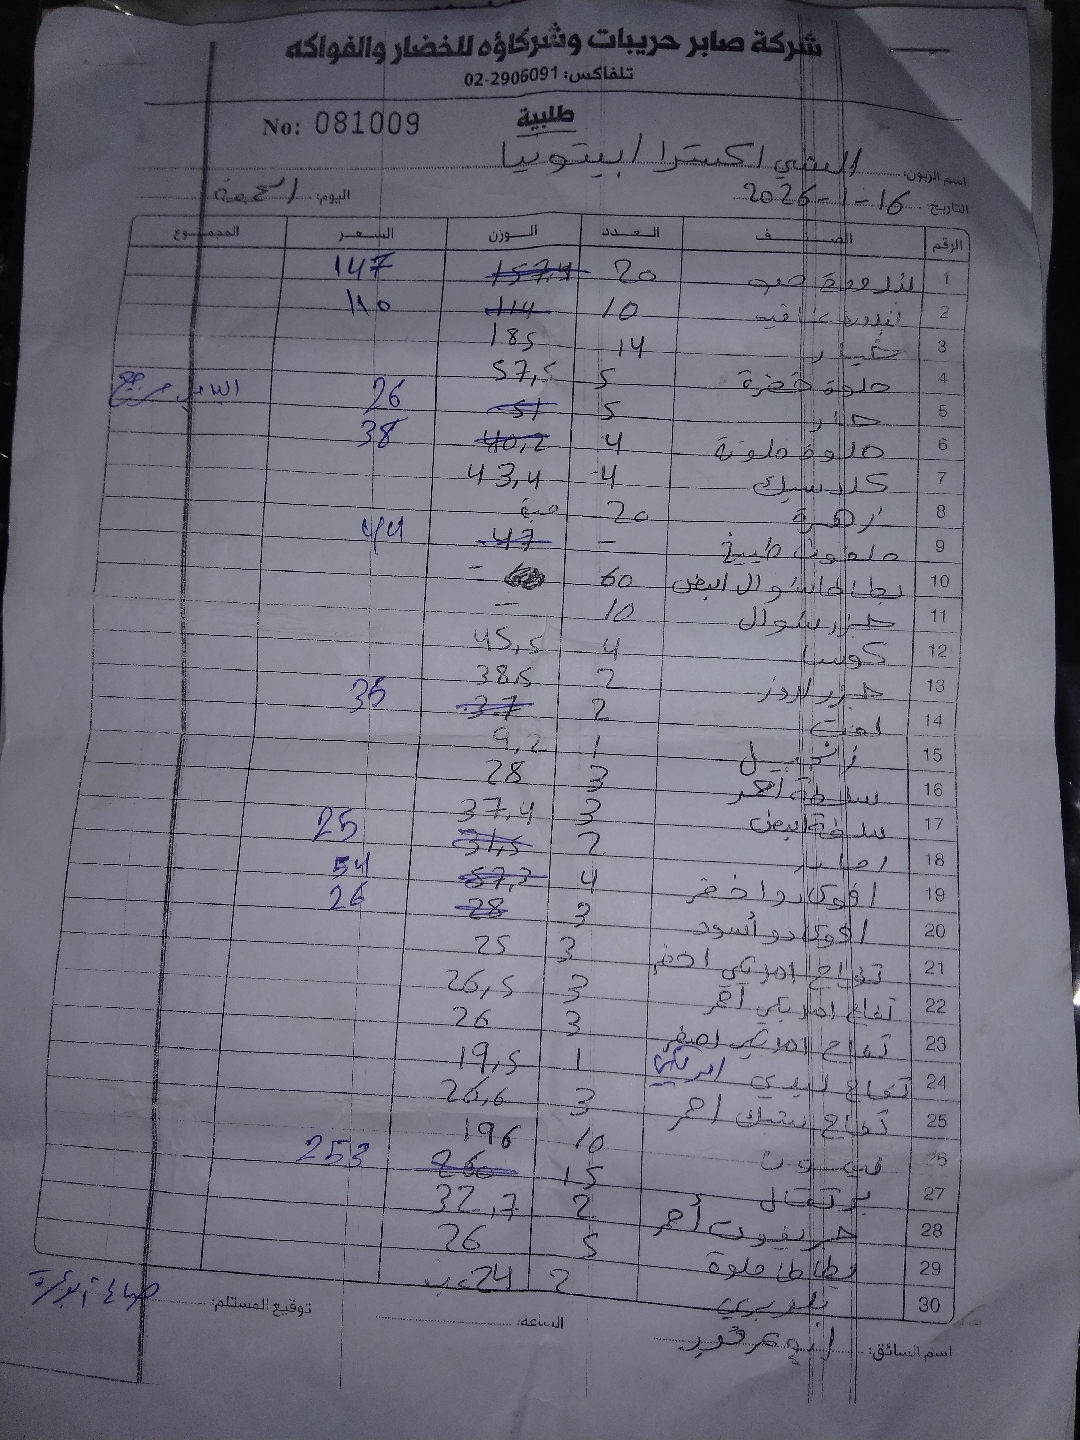 شركة صابر حريبات وشركاؤه للخضار والفواكه
تلفاكس: 02-2906091
طلبية
No: 081009
اسم الزبون: الشني اكسترا ابيتونيا
التاريخ: 16-1-2026 اليوم: الجمعة
الرقم الصنف العدد الوزن السعر المجموع
1 بندورة حب 20 157,4 147
2 بندورة 10 114 110
3 خيار 14 185
4 حلوة خضرة 5 57,5
5 حار 5 51 26
6 حلوة ملونة 4 40,2 38
7 كلاسيك 4 43,4
8 زهرة 20 حبة
9 ملفوف طبيخ - 47 44
10 بطاطا شوال ابيض 60 -
11 جزر شوال 10 -
12 كوسا 4 45,5
13 جزر لاروز 2 38,5
14 لفت 2 37 35
15 زنجبيل 1 9,2
16 سلطة احمر 3 28
17 سلطة ابيض 3 37,4
18 2 31,5 25
19 افوكادو اخضر 4 57,3 54
20 افوكادو أسود 3 28 26
21 تفاح امريكي اخضر 3 25
22 تفاح امريكي أحمر 3 26,5
23 تفاح امريكي اصفر 3 26
24 تفاح ليدي امريكي 1 19,5
25 تفاح احمر 3 26,6
26 ليمون 10 196
27 برتقال 15 260 253
28 جريفوت أحمر 2 32,7
29 بطاطا حلوة 5 26
30 بلوبري 2 24
اسم السائق: الساعة: توقيع المستلم: